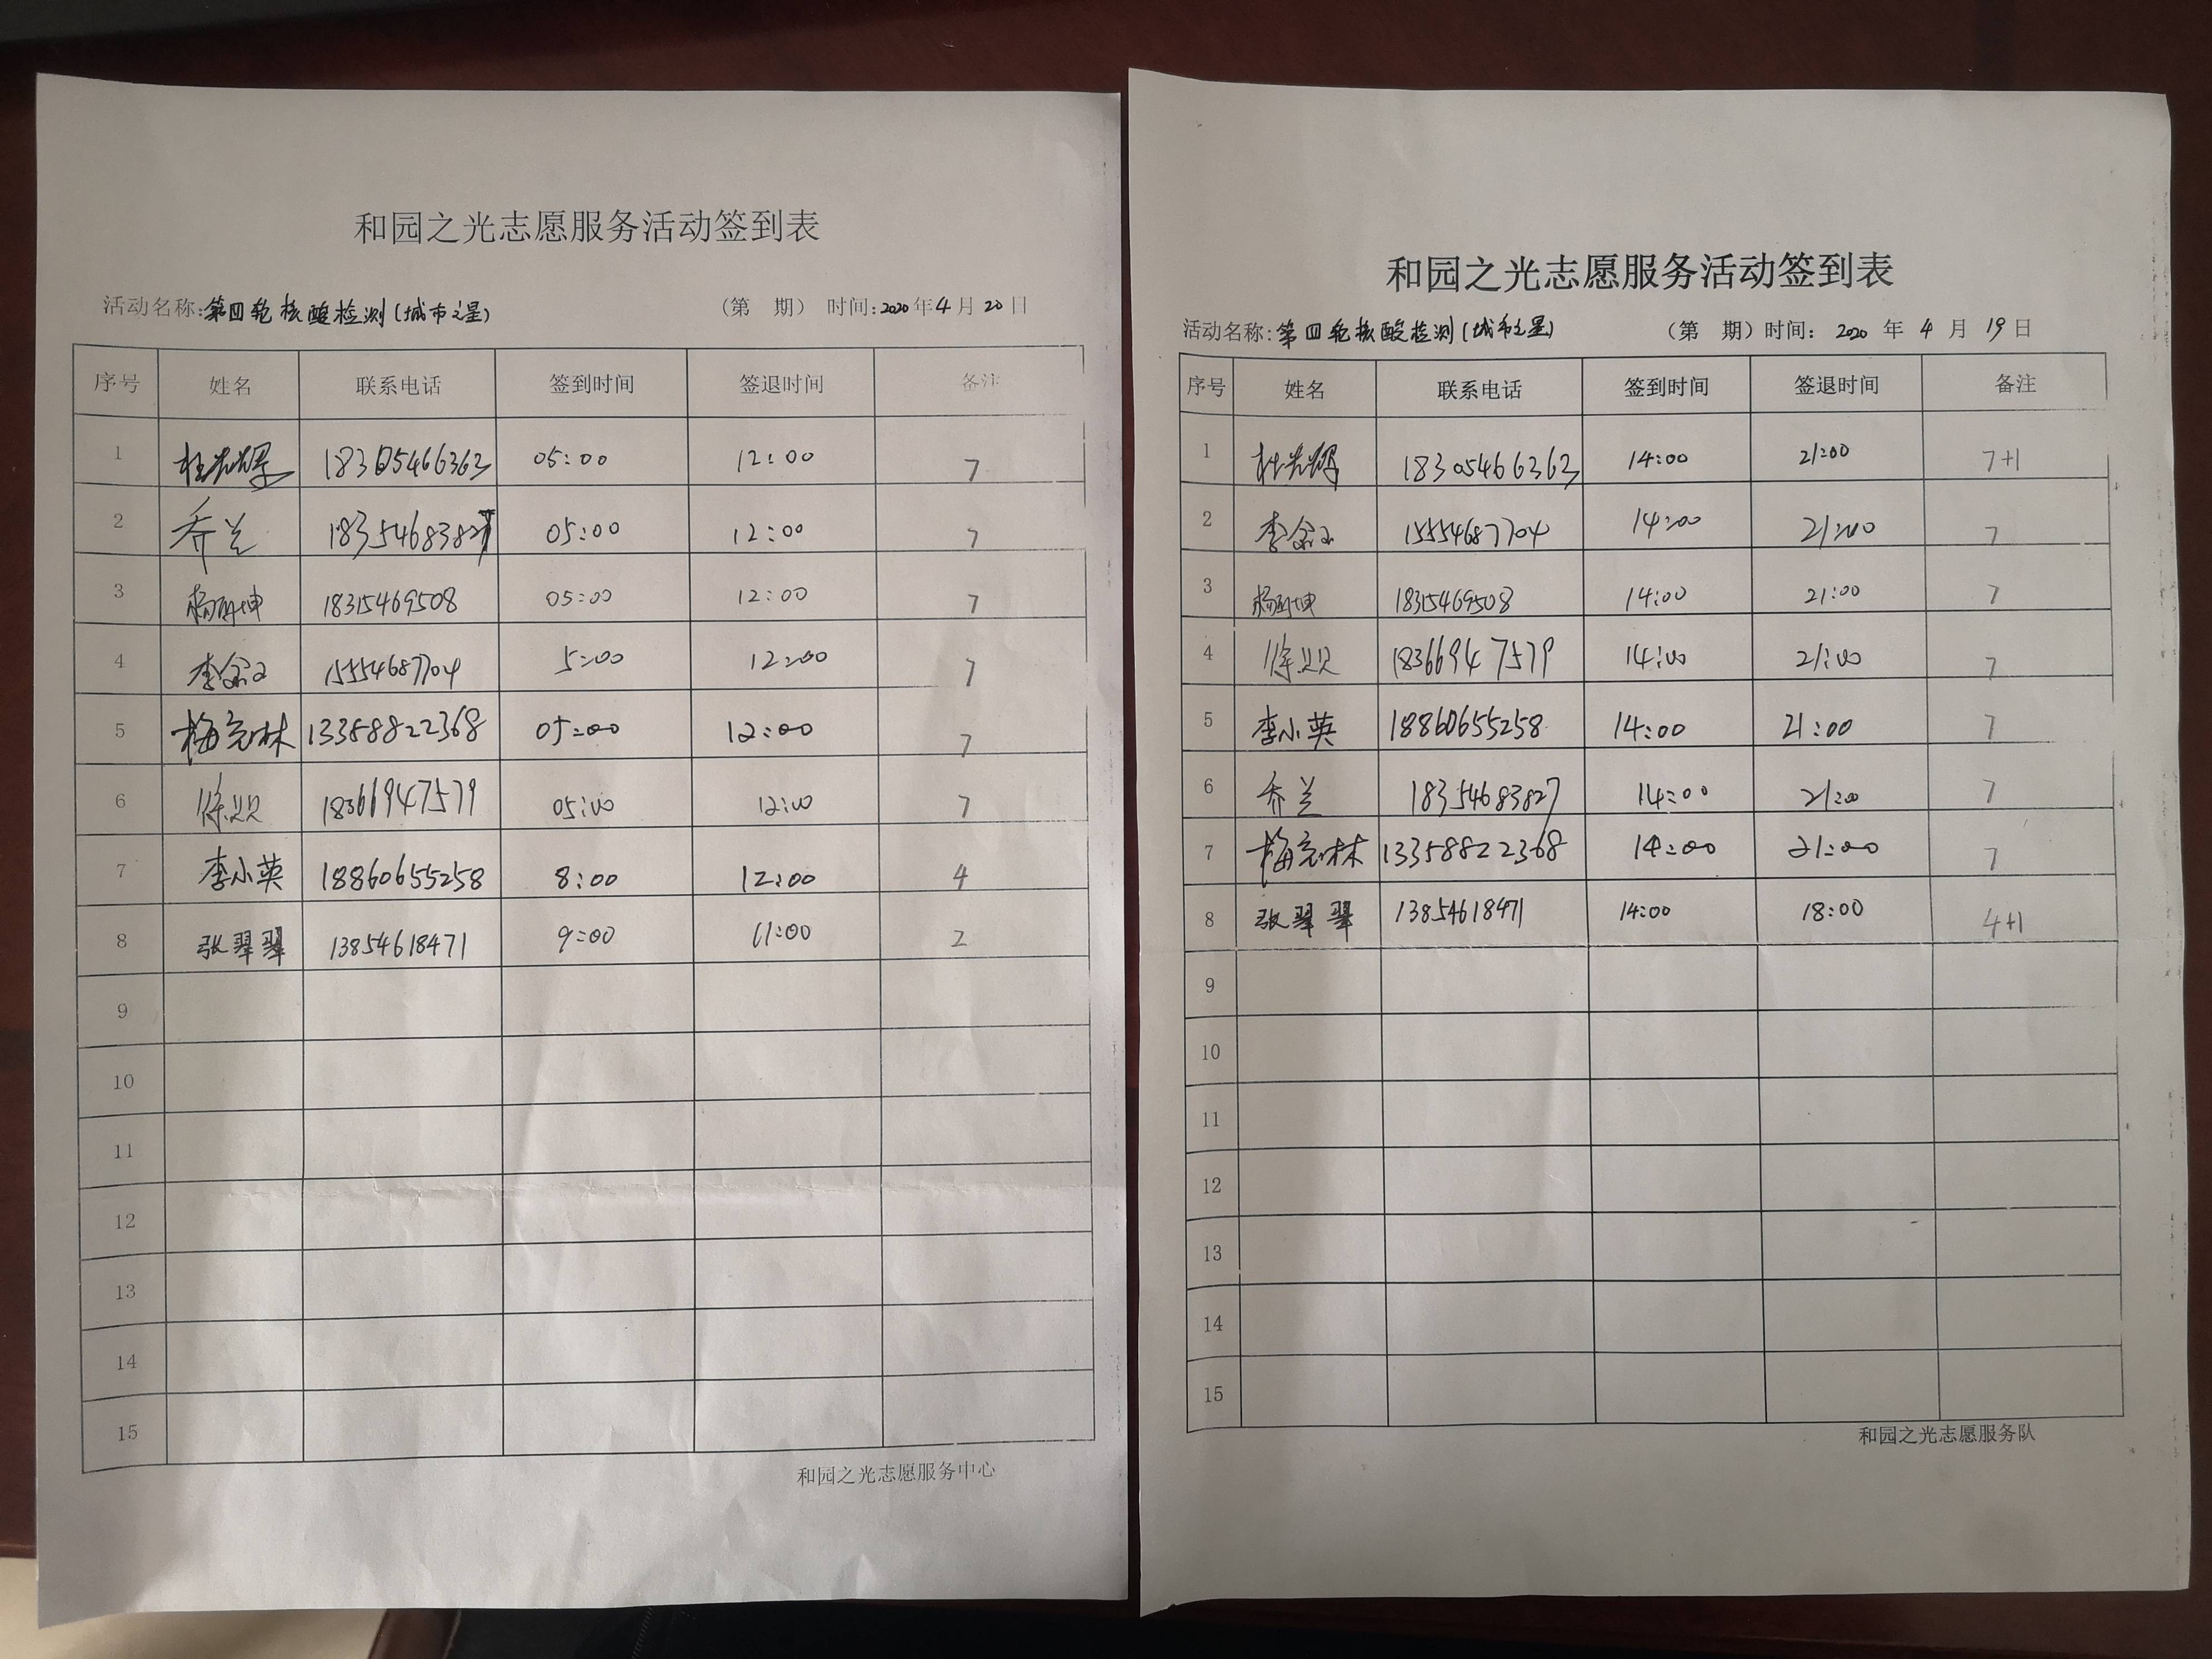 和园之光志愿服务活动签到表
活动名称:第四轮核酸检测(城市之星) (第 期) 时间:2020年4月20日
序号 姓名 联系电话 签到时间 签退时间 备注
1 杜光辉 18305466363 05:00 12:00 7
2 乔兰 18354683827 05:00 12:00 7
3 杨 坤 18315469508 05:00 12:00 7
4 李 15554687704 5:00 12:00 7
5 梅克林 13358822368 05:00 12:00 7
6 徐贝贝 18366947579 05:00 12:00 7
7 李小英 18860655258 8:00 12:00 4
8 张翠翠 13854618471 9:00 11:00 2
9
10
11
12
13
14
15
和园之光志愿服务中心
和园之光志愿服务活动签到表
活动名称:第四轮核酸检测(城市之星) (第 期)时间: 2020 年 4 月 19日
序号 姓名 联系电话 签到时间 签退时间 备注
1 杜光辉 18305466363 14:00 21:00 7+1
2 李 15554687704 14:00 21:00 7
3 杨 坤 18315469508 14:00 21:00 7
4 徐贝贝 18366947579 14:00 21:00 7
5 李小英 18860655258 14:00 21:00 7
6 乔兰 18354683827 14:00 21:00 7
7 梅克林 13358822368 14:00 21:00 7
8 张翠翠 13854618471 14:00 18:00 4+1
9
10
11
12
13
14
15
和园之光志愿服务队